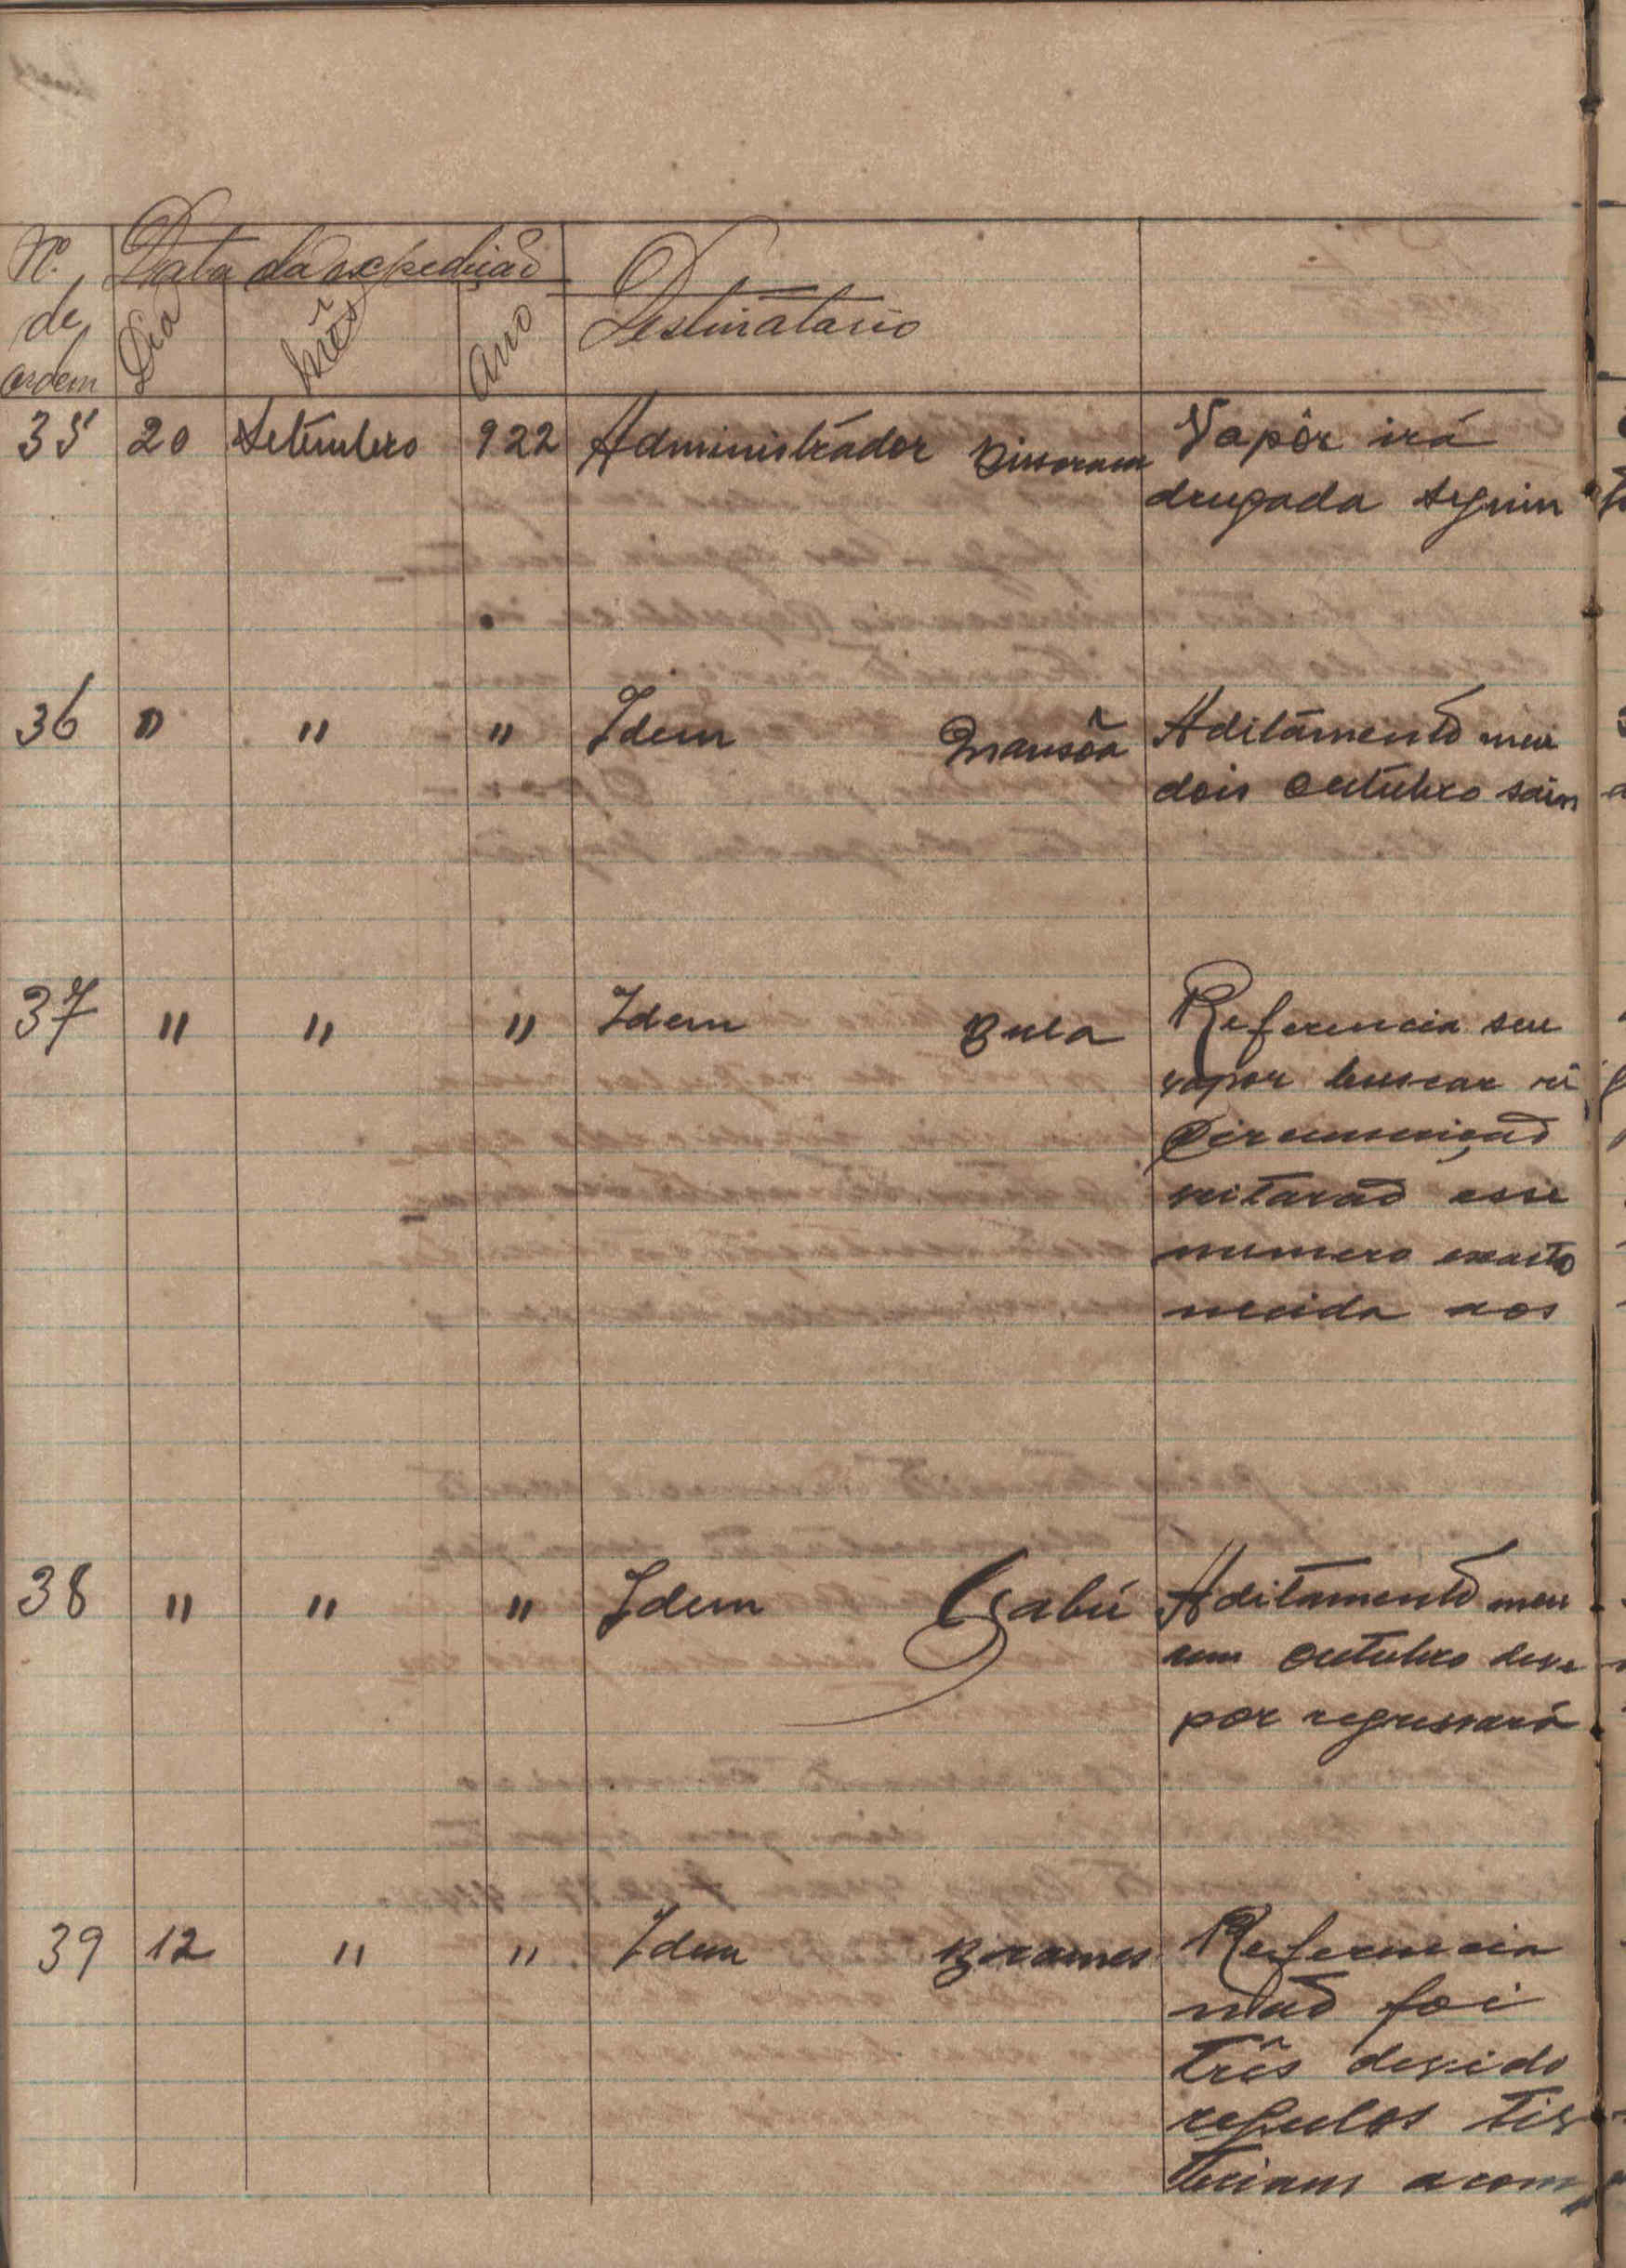 Nº. de ordem
Data da expedição
Dia Mês Ano
Destinatario
35 20 Setembro 922 Administrador Bissoram Vapôr irá
drugada seguin
36 " " " Idem Mansôa Aditamento meu
dois Outubro sain
37 " " " Idem Bula Referencia seu
vapor buscar ré
Circunscrição
veitarão esse
numero exacto
necida aos
38 " " " Idem Gabú Aditamento meu
um Outubro deve
por regressará
39 12 " " Idem Brames Referencia
não foi
três devido
regulos tiv
teriam acom